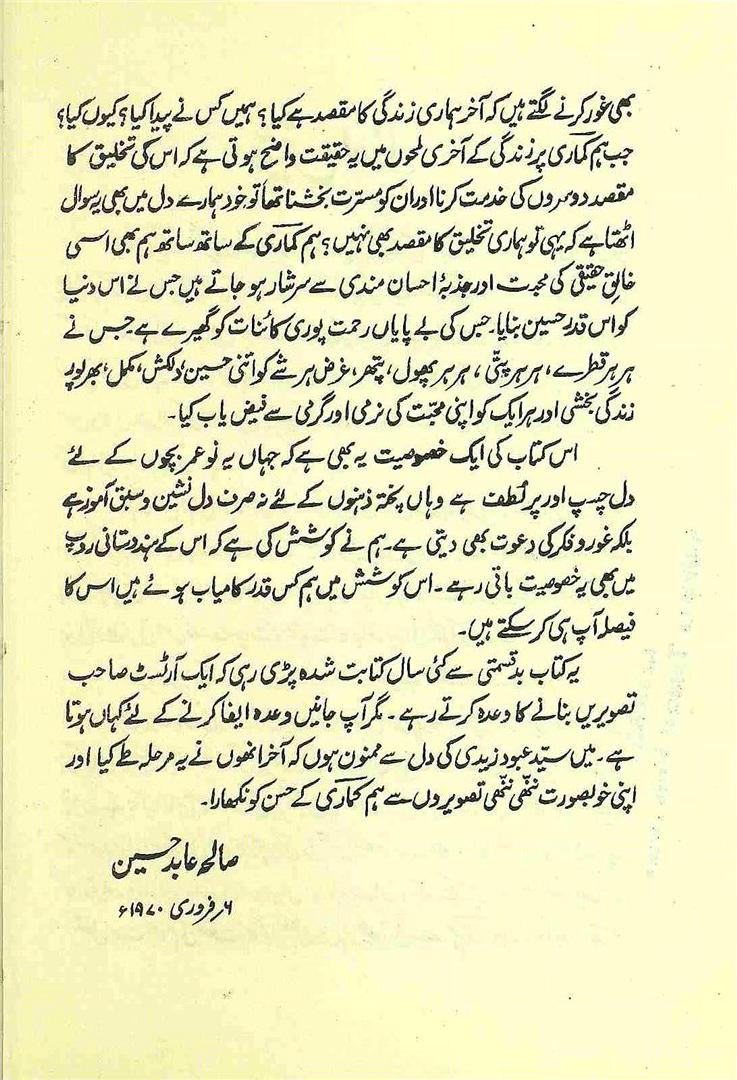 بھی غور کرنے لگتے ہیں کہ آخر ہماری زندگی کا مقصد ہے کیا؟ ہمیں کس نے پیدا کیا؟ کیوں کیا؟
جب ہم کماری پر زندگی کے آخری لمحوں میں یہ حقیقت واضح ہوتی ہے کہ اس کی تخلیق کا
مقصد دوسروں کی خدمت کرنا اور ان کو مسرّت بخشنا تھا تو خود ہمارے دل میں بھی یہ سوال
اٹھتا ہے کہ یہی تو ہماری تخلیق کا مقصد بھی نہیں؟ ہم کماری کے ساتھ ساتھ ہم بھی اسی
خالقِ حقیقی کی محبت اور جذبۂ احسان مندی سے سرشار ہو جاتے ہیں جس نے اس دنیا
کو اس قدر حسین بنایا۔ جس کی بے پایاں رحمت پوری کائنات کو گھیرے ہے جس نے
ہر ہر قطرے، ہر ہر پتّی، ہر ہر پھول، پتھر، غرض ہر شے کو اتنی حسین، دلکش، مکمل، بھرپور
زندگی بخشی اور ہر ایک کو اپنی محبّت کی نرمی اور گرمی سے فیض یاب کیا۔
اس کتاب کی ایک خصوصیت یہ بھی ہے کہ جہاں یہ نو عمر بچوں کے لئے
دل چسپ اور پر لطف ہے وہاں پختہ ذہنوں کے لئے نہ صرف دل نشین و سبق آموز ہے
بلکہ غور و فکر کی دعوت بھی دیتی ہے۔ ہم نے کوشش کی ہے کہ اس کے ہندوستانی روپ
میں بھی یہ خصوصیت باقی رہے۔ اس کوشش میں ہم کس قدر کامیاب ہوئے ہیں اس کا
فیصلہ آپ ہی کر سکتے ہیں۔
یہ کتاب بدقسمتی سے کئی سال کتابت شدہ پڑی رہی کہ ایک آرٹسٹ صاحب
تصویریں بنانے کا وعدہ کرتے رہے۔ مگر آپ جانیں وعدہ ایفا کرنے کے لئے کہاں ہوتا
ہے۔ میں سیّد عبود زیدی کی دل سے ممنون ہوں کہ آخر انھوں نے یہ مرحلہ طے کیا اور
اپنی خوبصورت ننھّی ننھّی تصویروں سے ہم کماری کے حسن کو نکھارا۔
صالحہ عابد حسین
۶ر فروری ۱۹۷۰ء